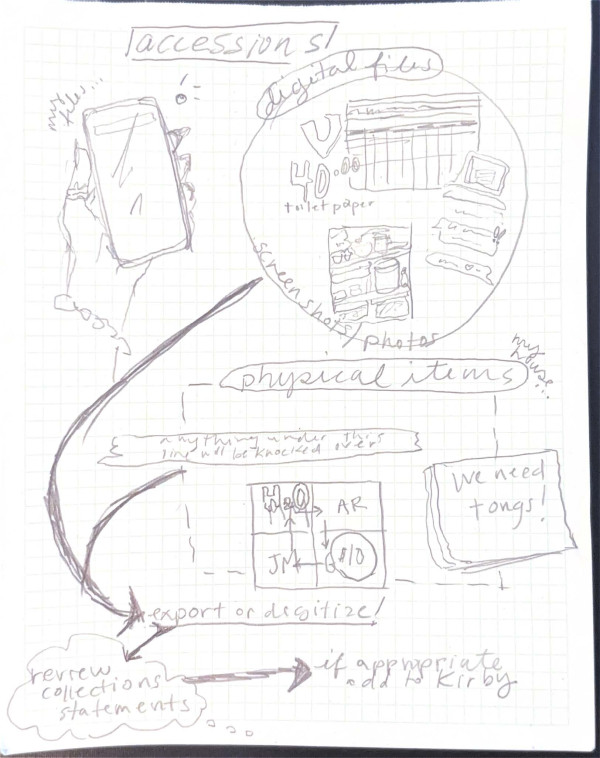 accessions
digital files
my files...
40.00
toilet paper
screenshots/photos
my house...
physical items
anything under this
line will be knocked over
We need
tongs!
H2O
AR
JM
$10
export or digitize!
review
collections
statements
if appropriate
add to Kirby